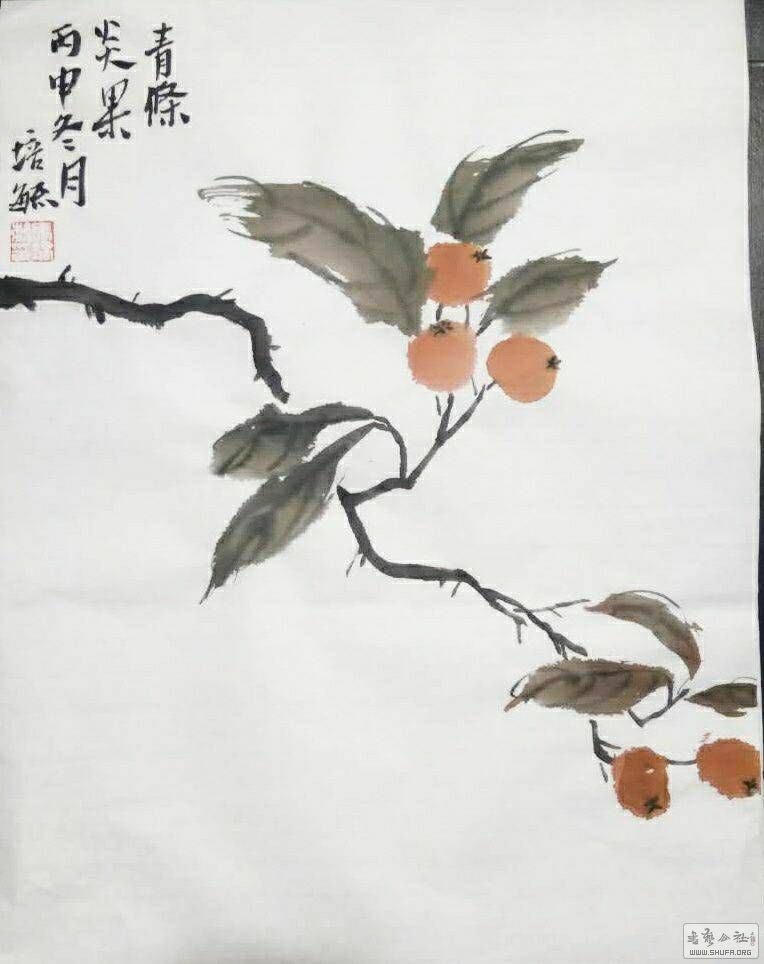 青條
炎果
丙申冬月
培毓
书艺公社
WWW.SHUFA.ORG